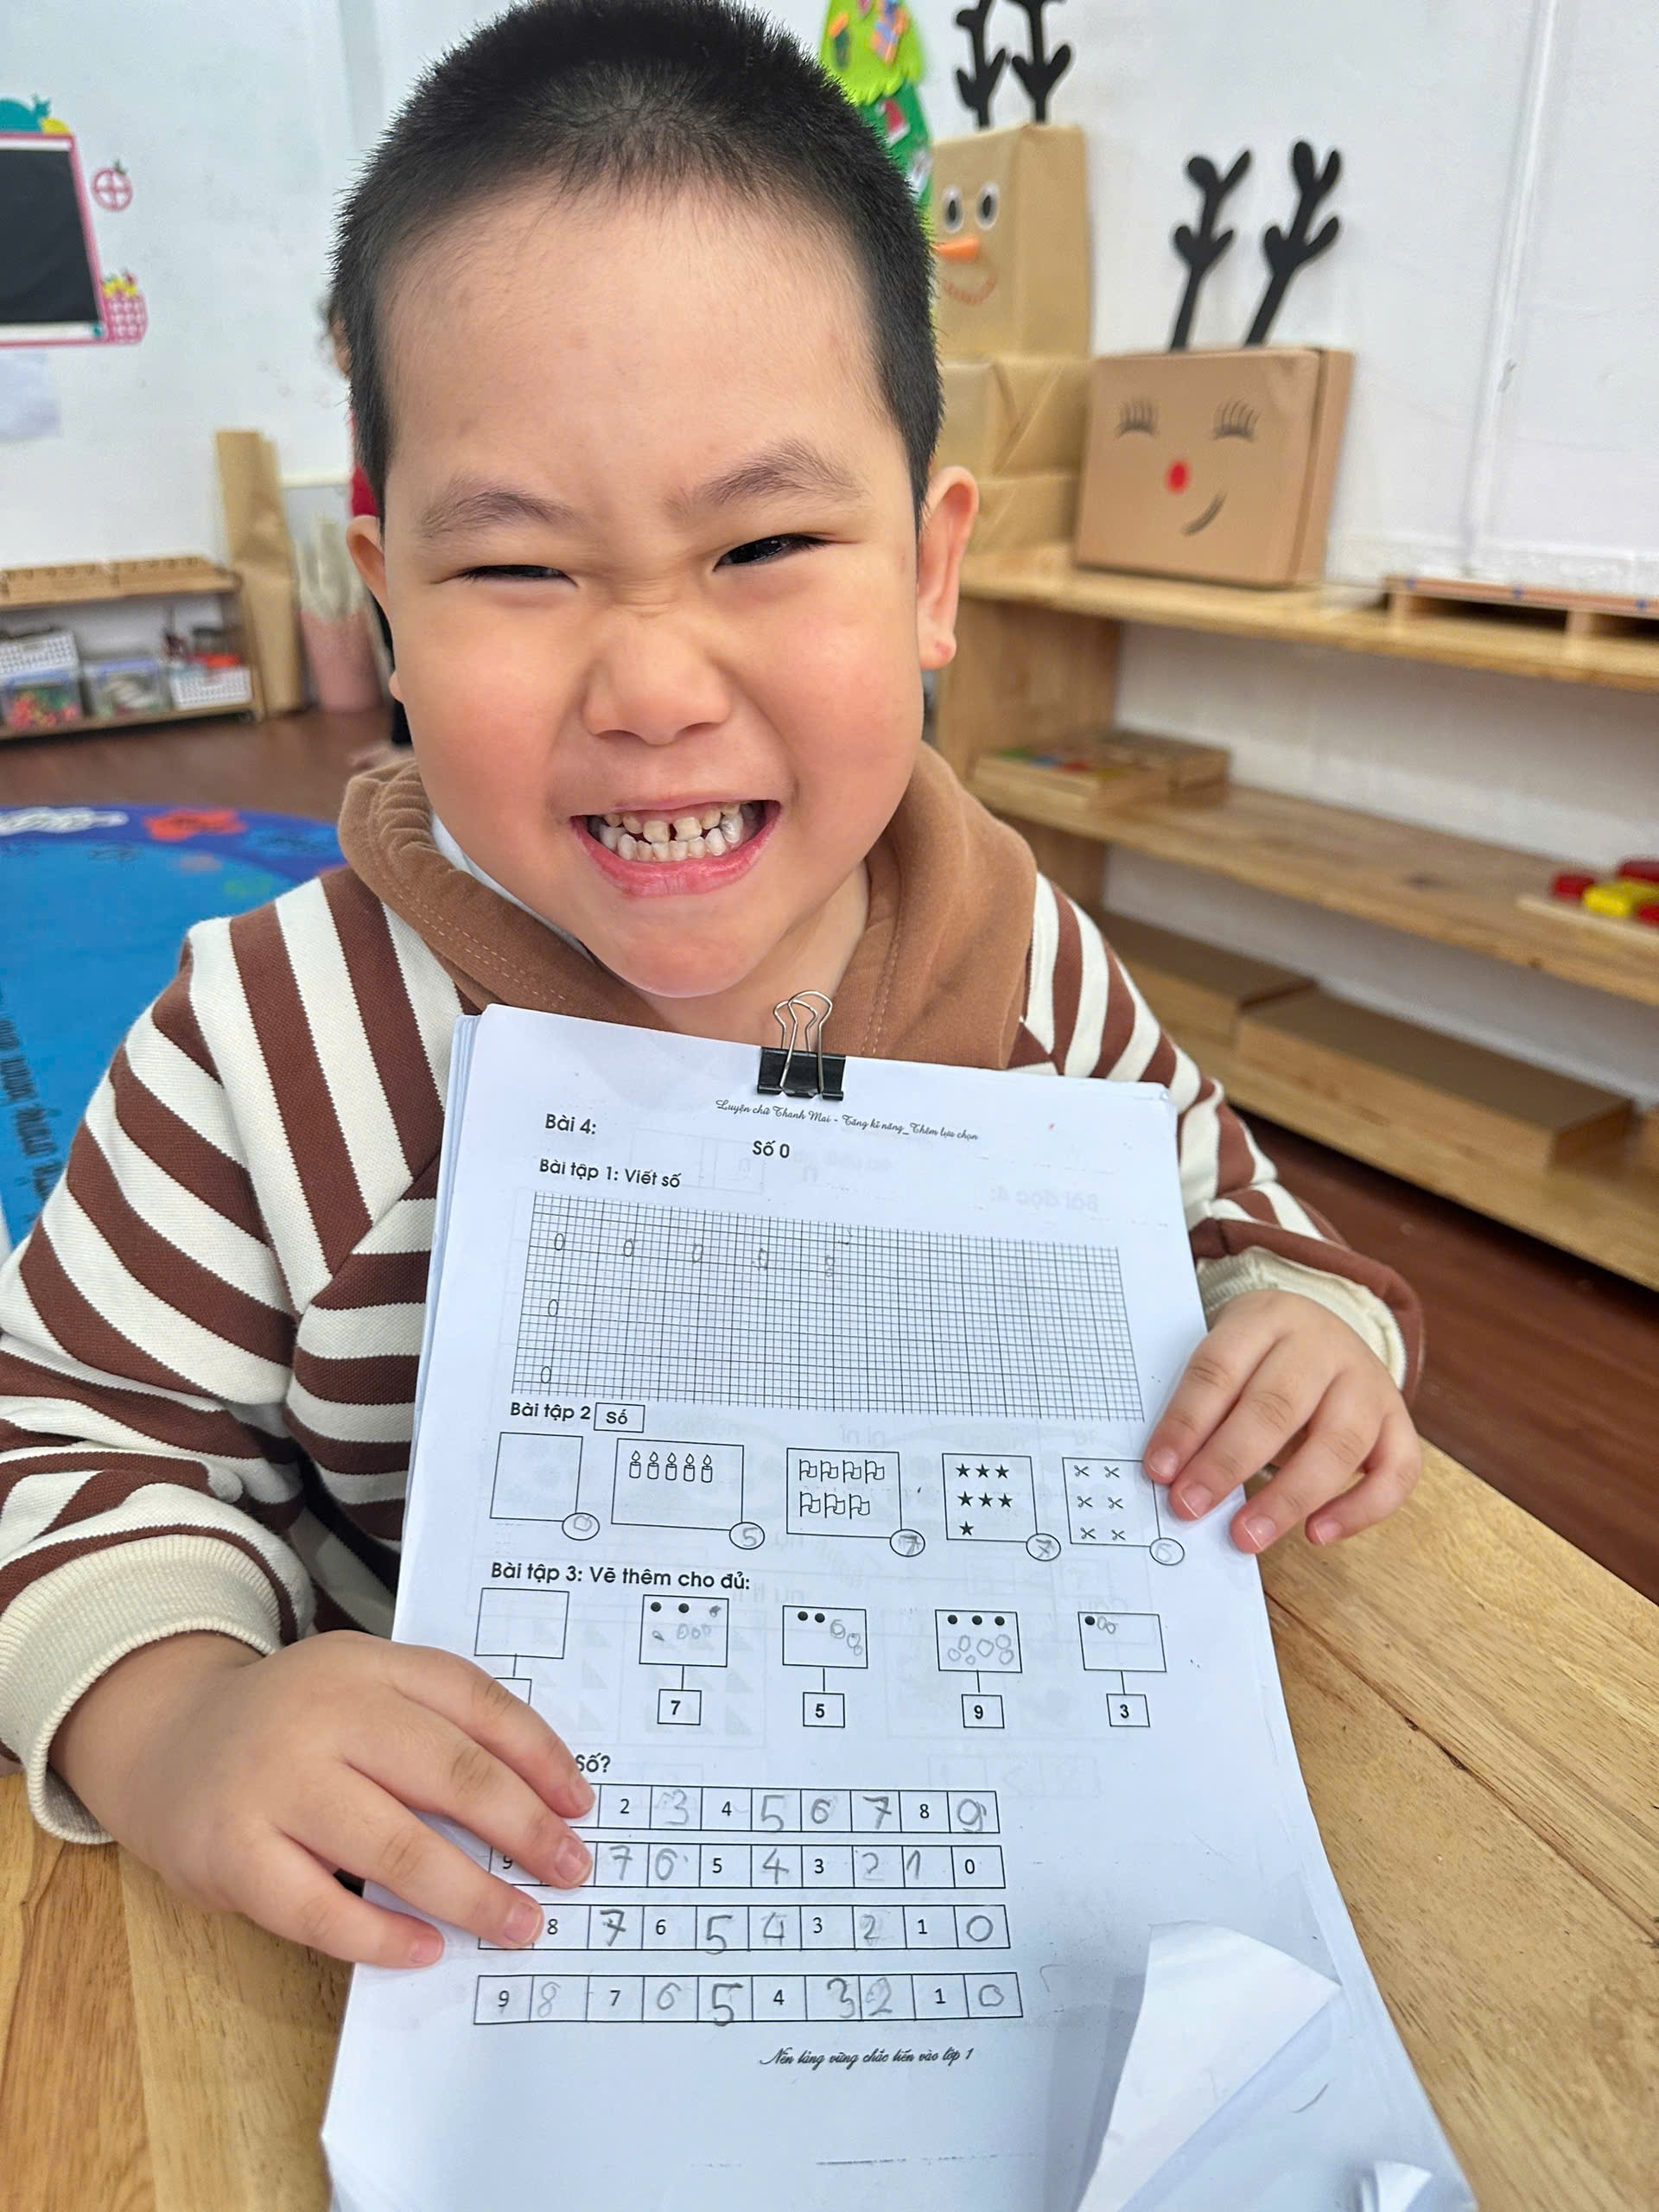 Luyện chữ Thanh Mai - Tăng kĩ năng_Thêm lựa chọn
Bài 4:
Số 0
Bài tập 1: Viết số
0 0 0 0 0
0
0
Bài tập 2 Số
0 5 7 7 6
Bài tập 3: Vẽ thêm cho đủ:
7 5 9 3
Số?
2 3 4 5 6 7 8 9
9 7 6 5 4 3 2 1 0
8 7 6 5 4 3 2 1 0
9 8 7 6 5 4 3 2 1 0
Nền tảng vững chắc tiến vào lớp 1